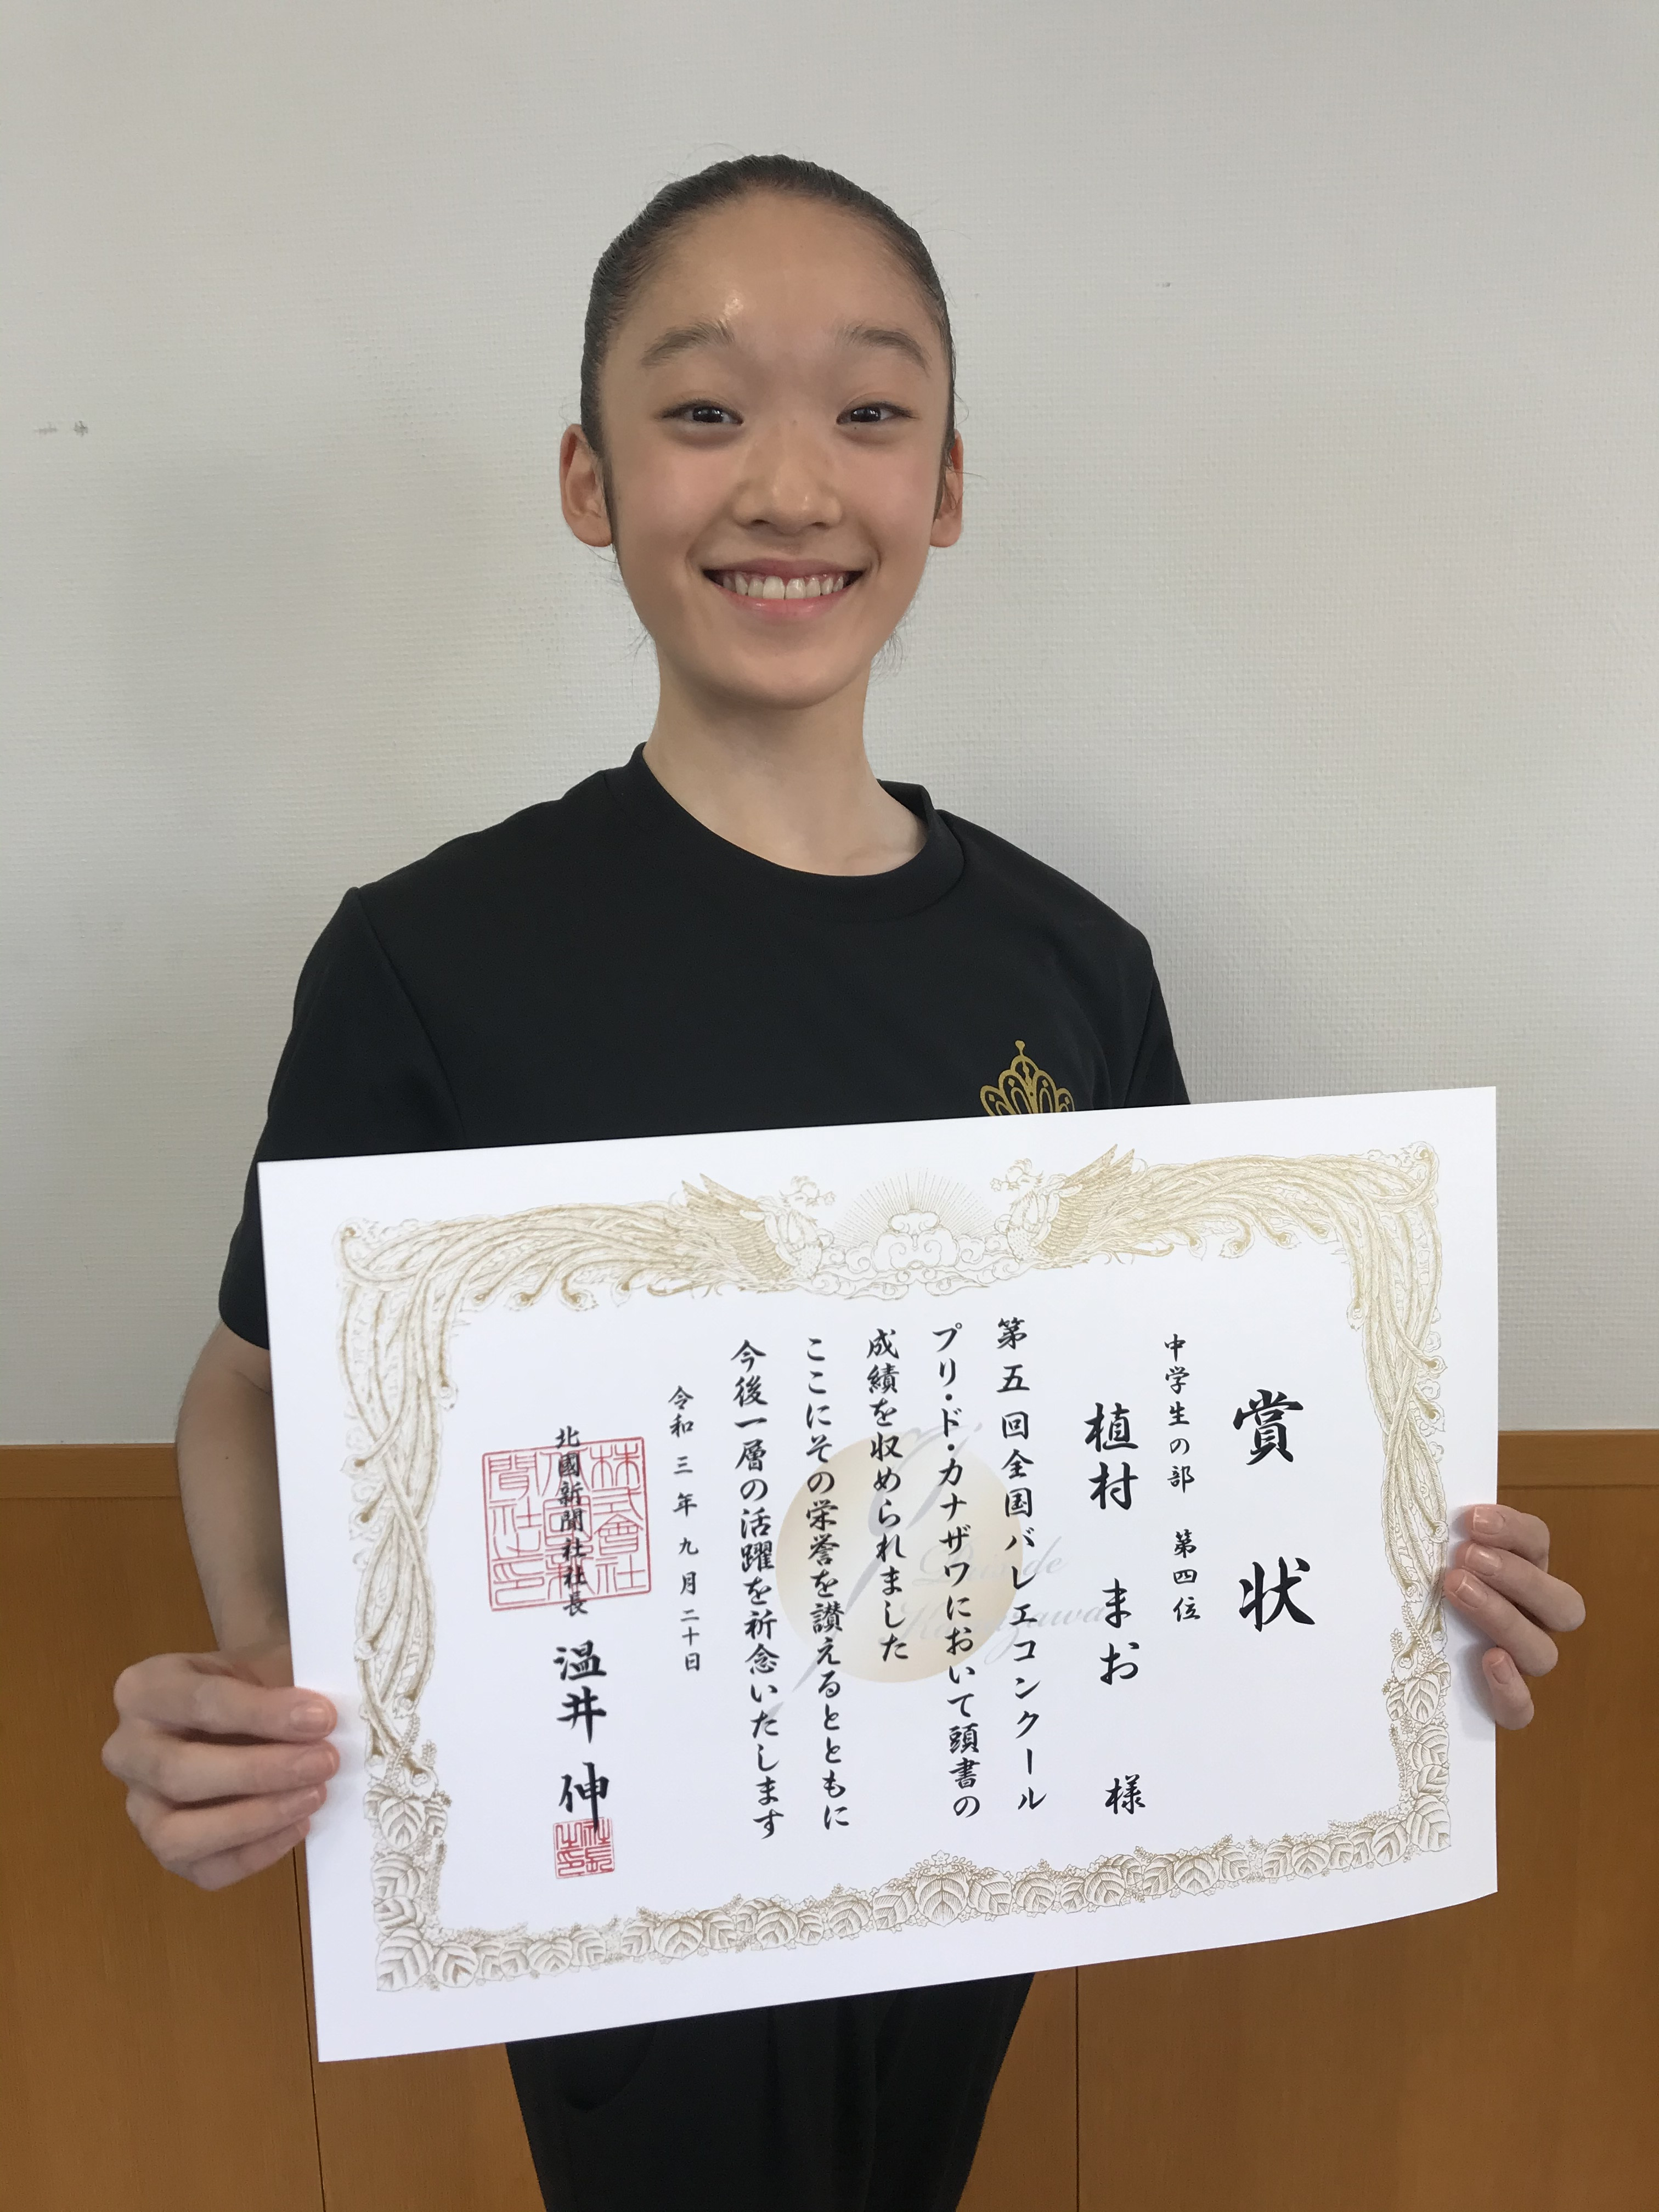 賞状
中学生の部 第四位
植村 まお 様
第五回全国バレエコンクール
プリ・ド・カナザワにおいて頭書の
成績を収められました
ここにその栄誉を讃えるとともに
今後一層の活躍を祈念いたします
令和三年九月二十日
北國新聞社社長 温井 伸
株式會社北國新聞社印
社長之印